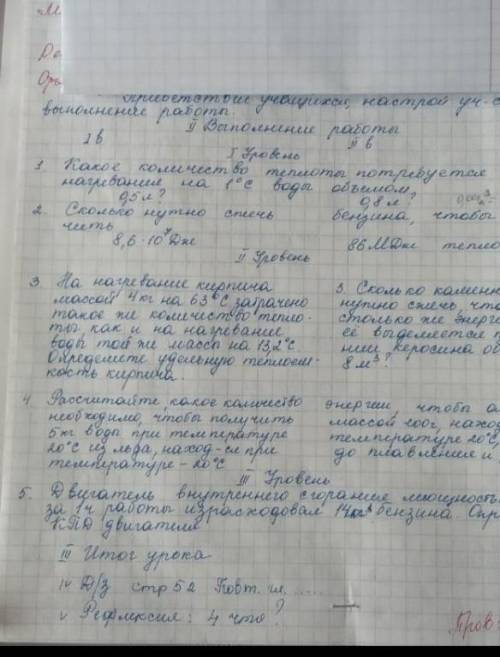 Приветствие учащихся, настрой уч-с
выполнение работы
II Выполнение работы
I в II в
I Уровень
1. Какое количество теплоты потребуется
нагревание на 1°С воды объемом,
0,5 л? 0,8 л?
2. Сколько нужно сжечь бензина, чтобы
чить
8,6·10⁷ Дж 86 МДж тепло
II Уровень
3. На нагревание кирпича
массой 4кг на 63°С затрачено
такое же количество тепло-
ты как и на нагревание
воды той же масса на 13,2°С
Определете удельную теплоем-
кость кирпича.
3. Сколько каменн
нужно сжечь, что
столько же энерг
её выделяется п
нии керосина об
8 м³?
4. Рассчитайте какое количество энергии, чтобы
необходимо, чтобы получить массой 200г, наход
5кг воды при температуре температуре 20°С,
20°С из льда, наход-ся при до плавления и
температуре -20°С
III Уровень
5. Двигатель внутреннего сгорание мощность
за 1ч работы израсходовал 14кг бензина. Опр
КПД двигателя
III Итог урока
IV Д/З стр 52 Повт. гл. .....
V Рефлексия: 4 что?
Пров